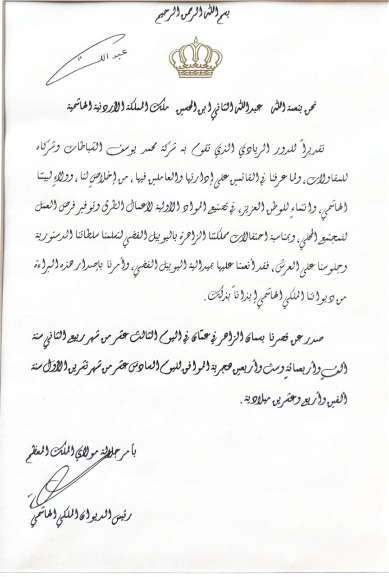 بسم الله الرحمن الرحيم
عبد الله
نحن بنعمة الله عبدالله الثاني ابن الحسين ملك المملكة الأردنية الهاشمية
تقديراً للدور الريادي الذي تقوم به شركة محمد يوسف القباطات وشركاه
للمقاولات، ولما عرفنا في القائمين على إدارتها والعاملين فيها، من إخلاص لنا، وولاء لبيتنا
الهاشمي، وانتماء للوطن العزيز، في تصنيع المواد الأولية لأعمال الطرق وتوفير فرص العمل
للمجتمع المحلي، وبمناسبة احتفالات مملكتنا الزاهرة باليوبيل الفضي لتسلمنا سلطاتنا الدستورية
وجلوسنا على العرش، فقد أنعمنا عليها بميدالية اليوبيل الفضي، وأمرنا بإصدار هذه البراءة
من ديواننا الملكي الهاشمي إيذاناً بذلك.
صدر عن قصرنا بسمان الزاهر في عمّان في اليوم الثالث عشر من شهر ربيع الثاني سنة
ألف وأربعمائة وست وأربعين هجرية الموافق لليوم السادس عشر من شهر تشرين الأول سنة
ألفين وأربع وعشرين ميلادية.
بأمر جلالة مولاي الملك المعظم
رئيس الديوان الملكي الهاشمي